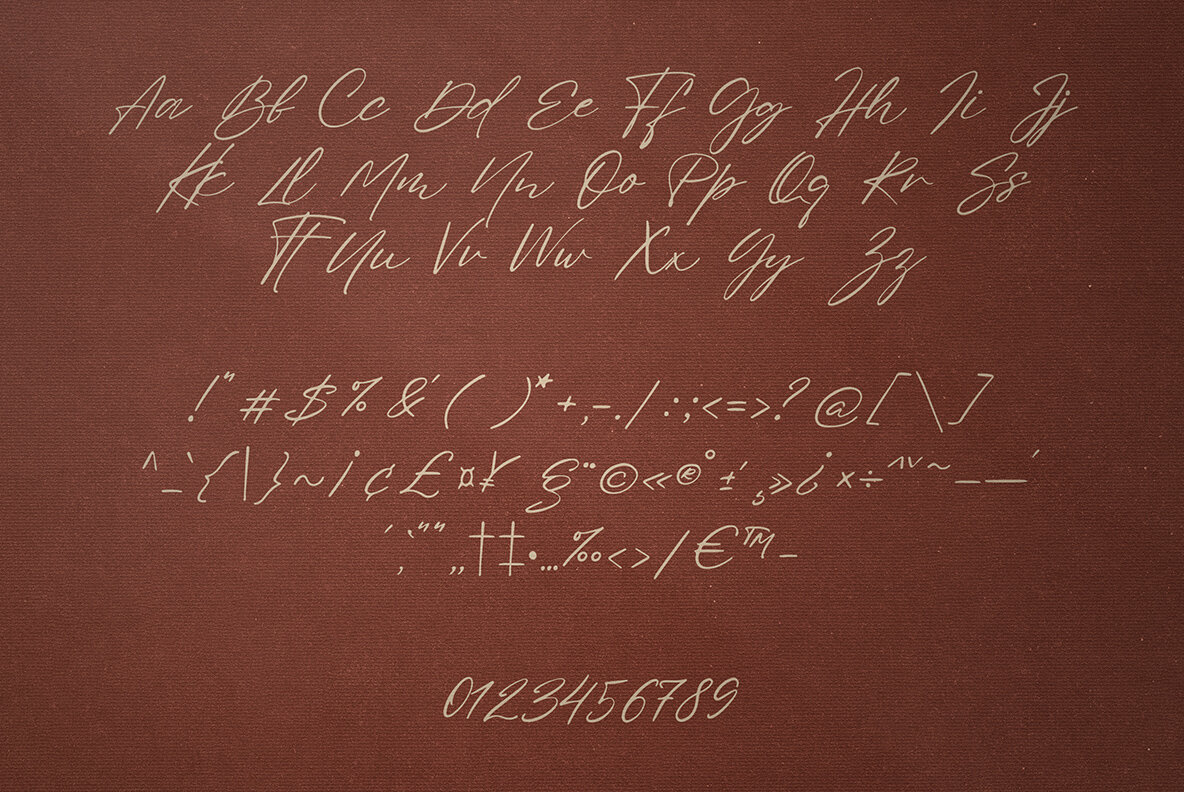 Aa Bb Cc Dd Ee Ff Gg Hh Ii Jj
Kk Ll Mm Nn Oo Pp Qq Rr Ss
Tt Uu Vv Ww Xx Yy Zz
!" # $ % & ' ( ) * + , - . / : ; < = > ? @ [ \ ]
^ _ ` { | } ~ ¡ ¢ £ ¤ ¥ § ¨ © « ® ° ± ´ ¸ » ¿ × ÷ ˆ ˇ ˜ – — ‘
’ ‚ ‛ “ ” „ † ‡ • … ‰ ‹ › ⁄ € ™ −
0123456789